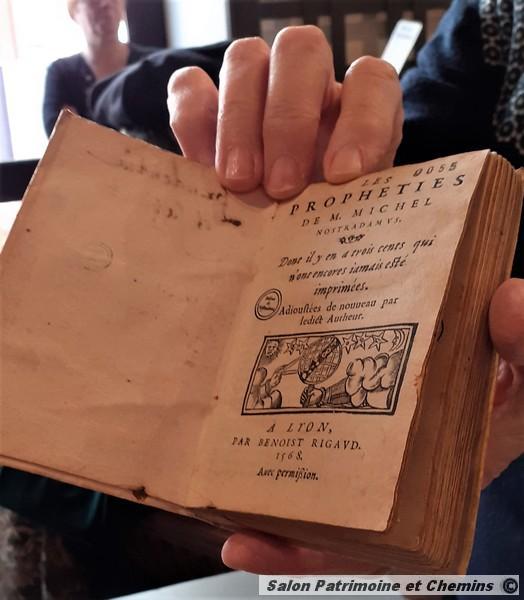 LES 0055
PROPHETIES
DE M. MICHEL
NOSTRADAMVS.
Dont il y en a trois cens qui
n'ont encores iamais esté
imprimées.
Adioustées de nouueau par
ledict Autheur.
A LYON,
PAR BENOIST RIGAVD.
1568.
Auec permißion.
Salon Patrimoine et Chemins ©